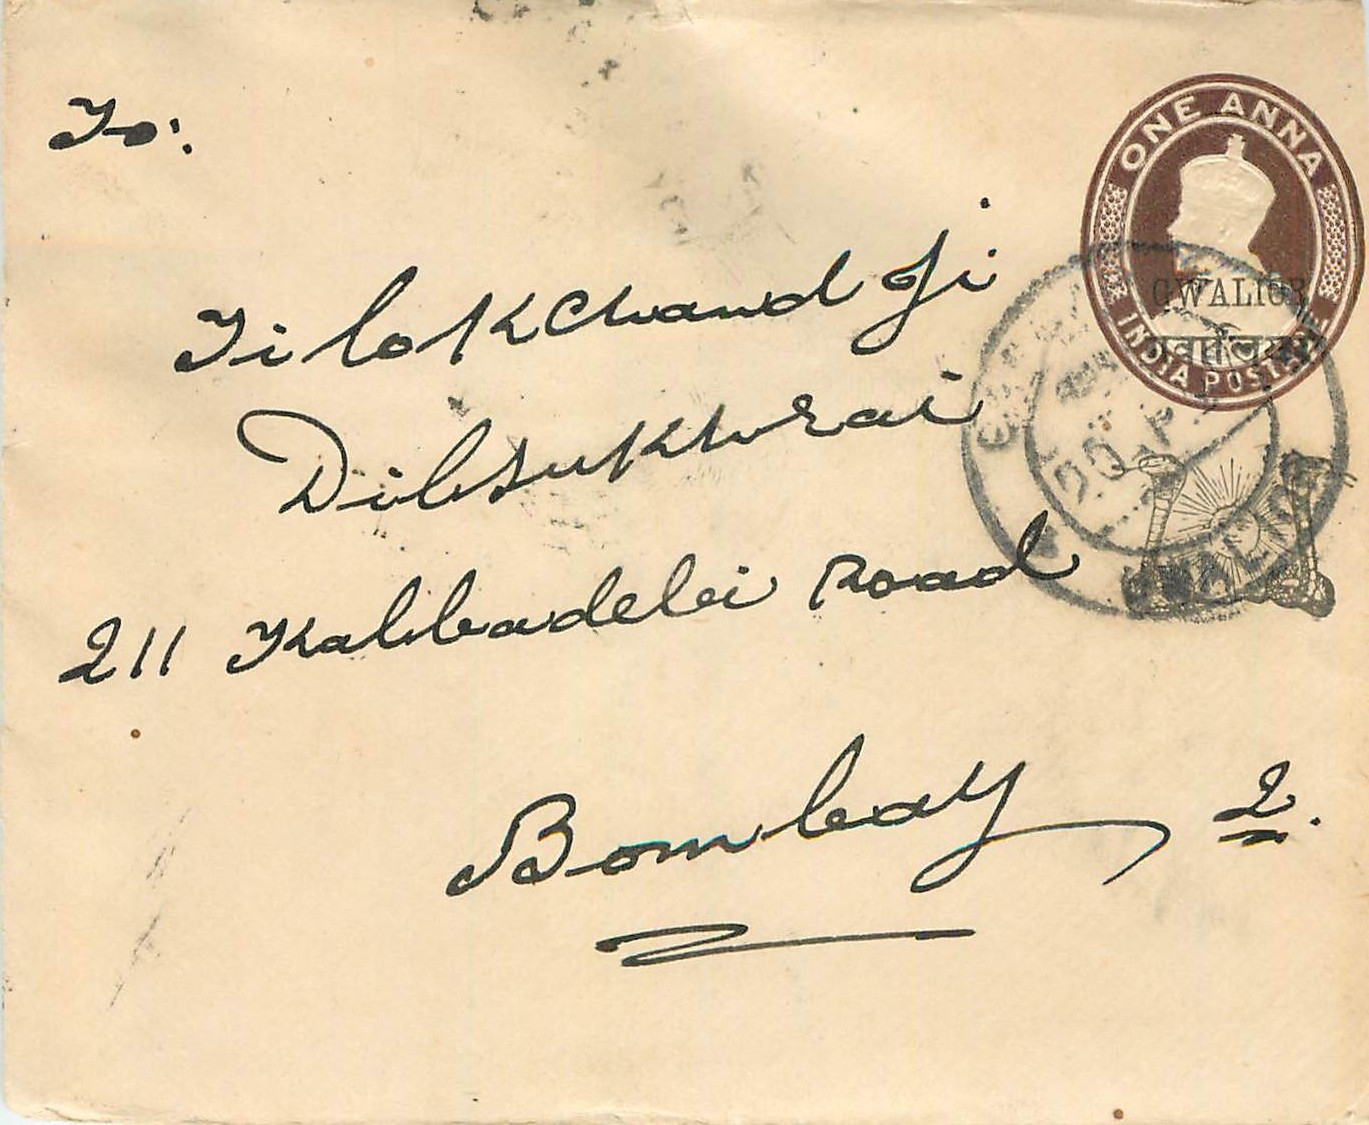 To:
ONE ANNA
Tilokchand Ji
GWALIOR
ग्वालियर
INDIA POSTAGE
Dilsukhrai
20 AP
211 Kalbadebi Road
Bombay 2.